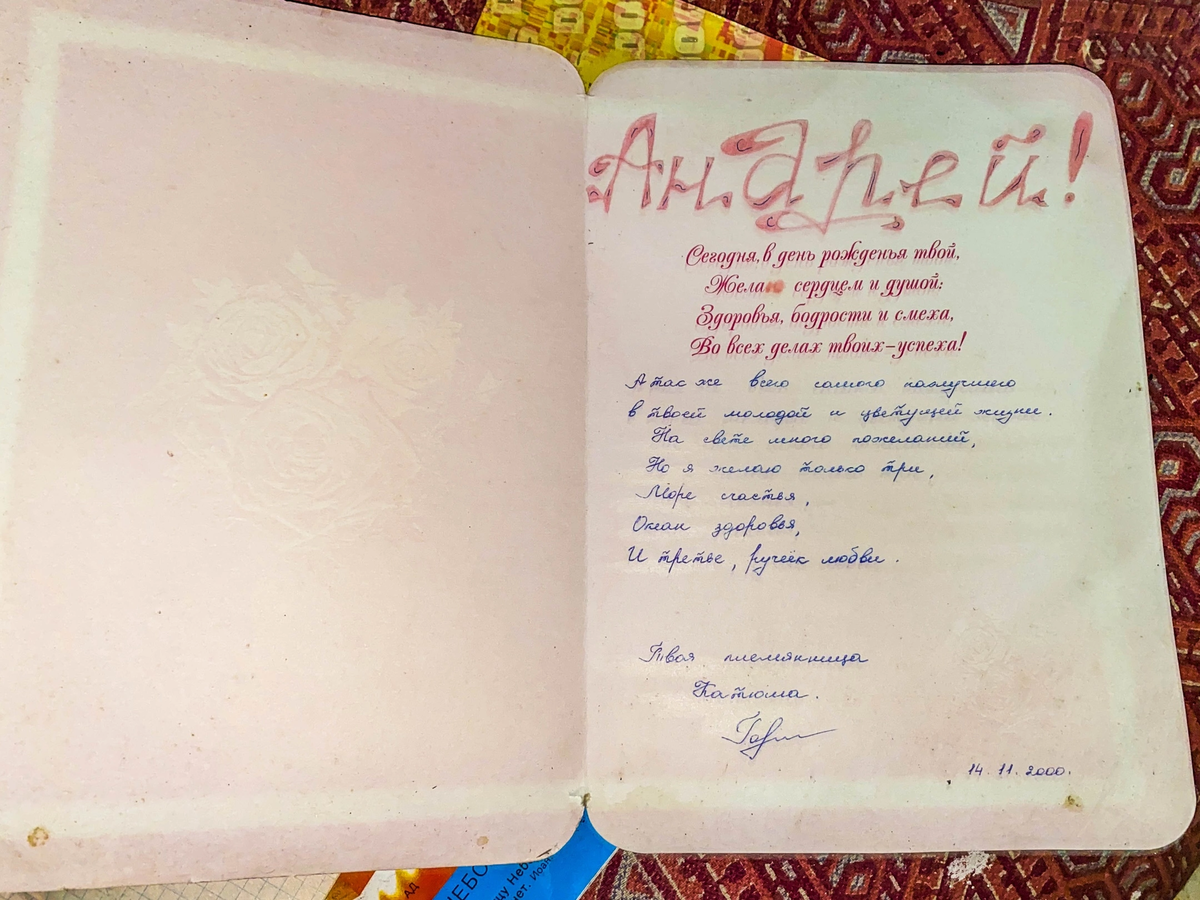 Андрей!
Сегодня, в день рожденья твой,
Желаю сердцем и душой:
Здоровья, бодрости и смеха,
Во всех делах твоих–успеха!
А так же всего самого наилучшего
в твоей молодой и цветущей жизни.
На свете много пожеланий,
Но я желаю только три,
Море счастья,
Океан здоровья,
И третье, ручеёк любви.
Твоя племянница
Катюша.
14.11.2000.